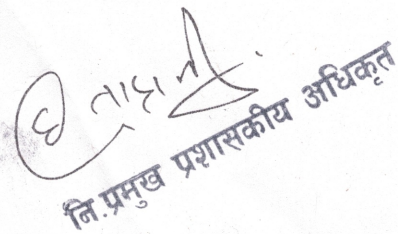 नि.प्रमुख प्रशासकीय अधिकृत